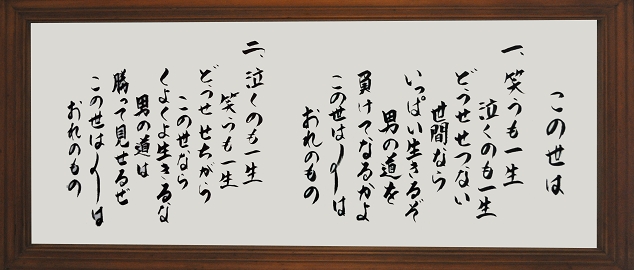 この世は
一、笑うも一生
泣くのも一生
どうせせつない
世間なら
いっぱい生きるぞ
男の道を
負けてなるかよ
この世は〱は
おれのもの
二、泣くのも一生
笑うも一生
どうせせちがう
この世なら
くよくよ生きるな
男の道は
勝って見せるぜ
この世は〱は
おれのもの